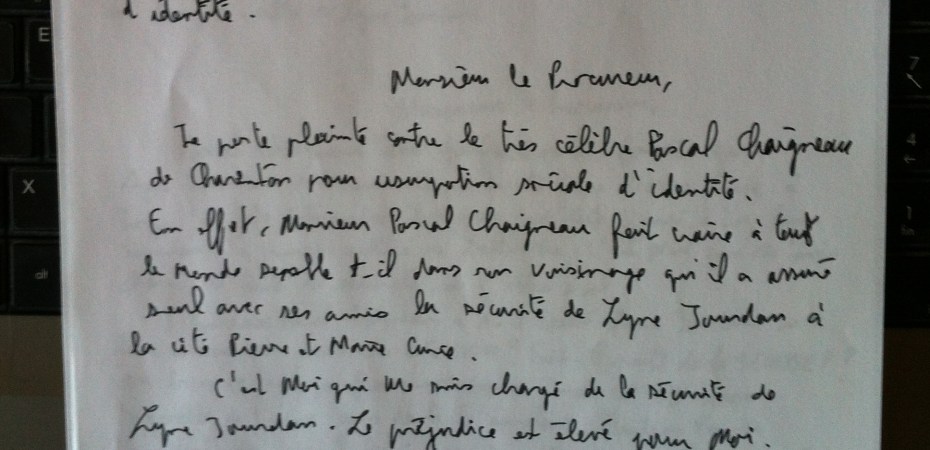 d'identité.
Monsieur le Procureur,
Je porte plainte contre le très célèbre Pascal Chaigneau
de Charenton pour usurpation sociale d'identité.
En effet, Monsieur Pascal Chaigneau fait croire à tout
le monde semble t-il dans son voisinage qu'il a assuré
seul avec ses amis la sécurité de Lyne Jourdan à
la cité Pierre et Marie Curie.
C'est moi qui me suis chargé de la sécurité de
Lyne Jourdan. Le préjudice est élevé pour moi.